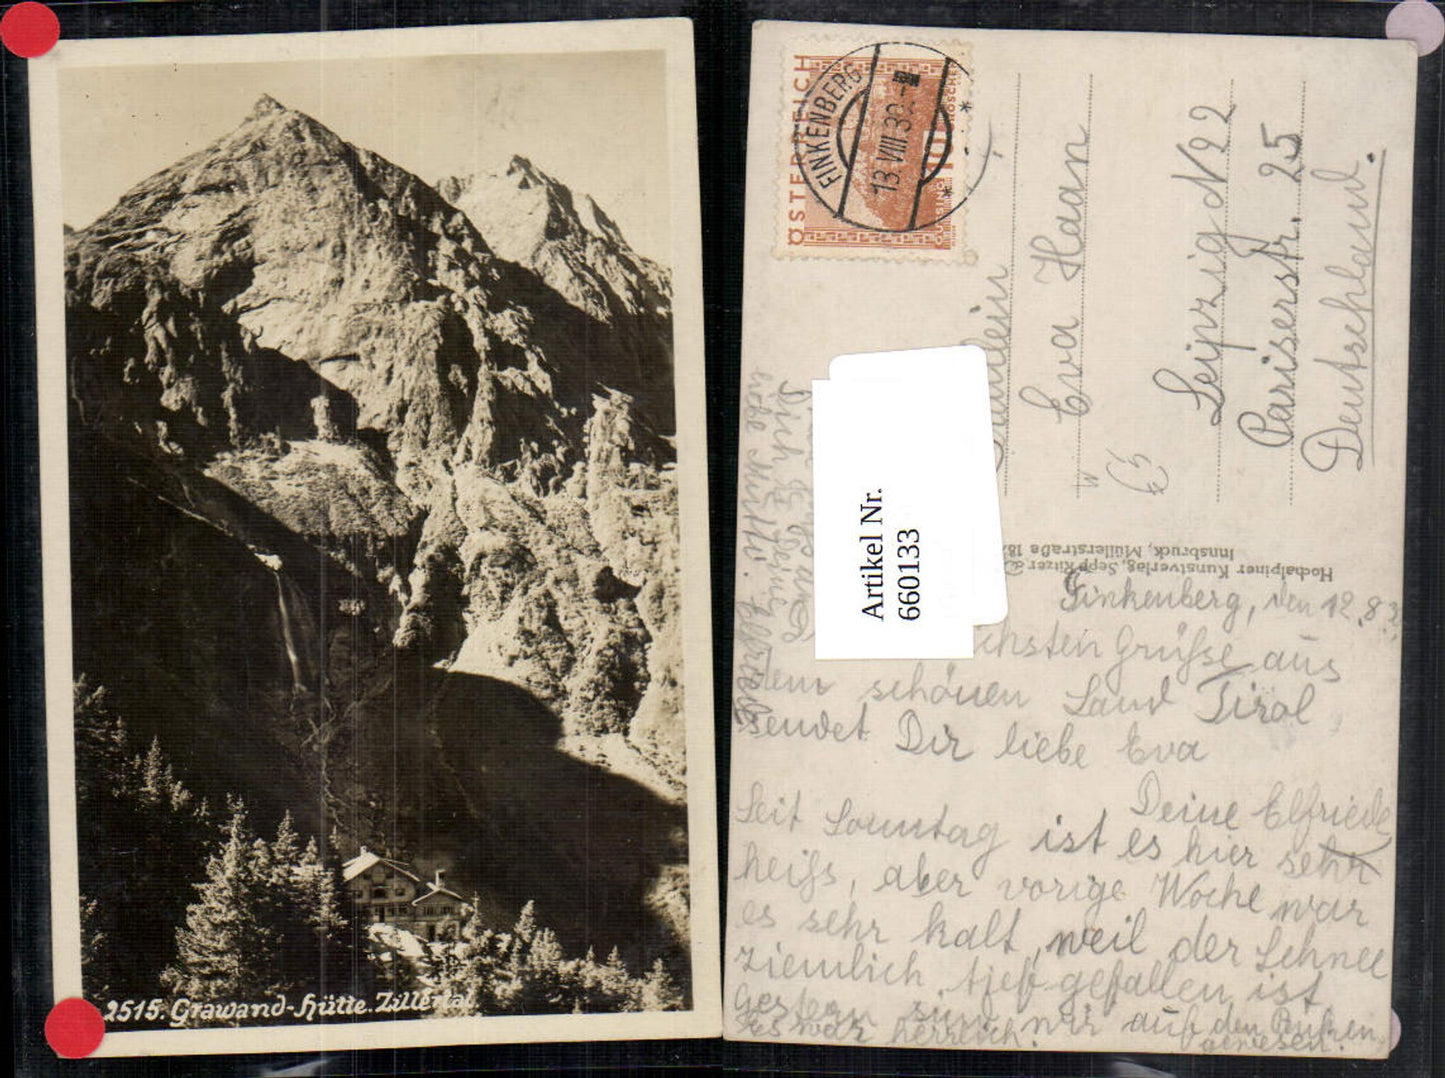 2515. Grawand-Hütte. Zillertal
ÖSTERREICH
10
GROSCHEN
GÜSSING
FINKENBERG
13 VIII 32
Fräulein
Eva Haan
Leipzig N 22
Pariserstr. 25
Deutschland.
Artikel Nr.
660133
Hochalpiner Kunstverlag, Sepp Ritzer
Innsbruck, Müllerstraße 18
Finkenberg, den 12.8.3
chsten Grüße aus
dem schönen Land Tirol
sendet Dir liebe Eva
Deine Elfriede
Seit Sonntag ist es hier sehr
heiß, aber vorige Woche war
es sehr kalt, weil der Schnee
ziemlich tief gefallen ist.
Gestern sind wir auf den
gewesen.
Es war herrlich.
Dich
liebe Mutti.